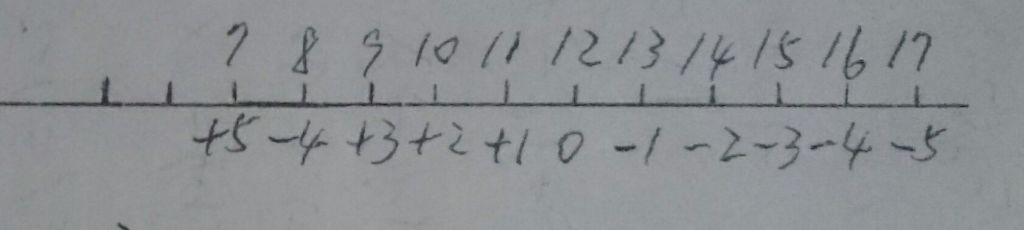 7 8 9 10 11 12 13 14 15 16 17
+5 -4 +3 +2 +1 0 -1 -2 -3 -4 -5